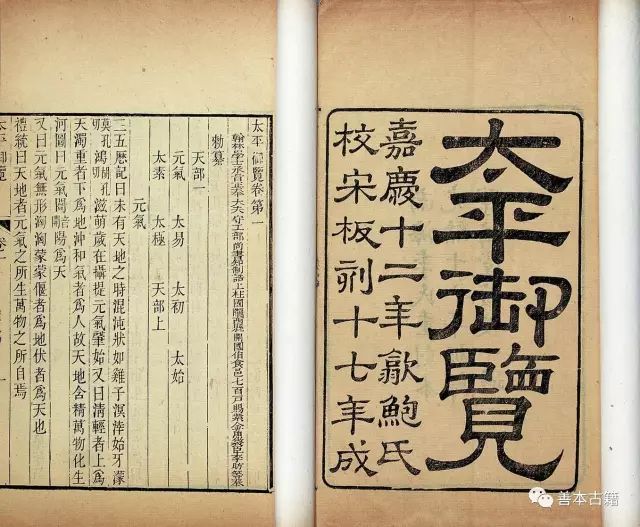 太平御覽
嘉慶十二年歙鮑氏
校宋板刻十七年成
太平御覽卷第一
翰林學士承旨正奉大夫守工部尚書知制誥上柱國隴西縣開國伯食邑七百戶賜紫金魚袋臣李昉等奉
勅纂
天部一
元氣 太易 太初 太始
太素 太極 天部上
元氣
三五歴記曰未有天地之時混沌狀如雞子溟涬始牙濛
莫孔切鴻胡孔切滋萌歳在攝提元氣肇始又曰清輕者上爲
天濁重者下爲地沖和氣者爲人故天地含精萬物化生
河圖曰元氣闓陽爲天
又曰元氣無形洶洶蒙蒙偃者爲地伏者爲天也
禮統曰天地者元氣之所生萬物之所自焉
太平御覽 卷一 一
善本古籍